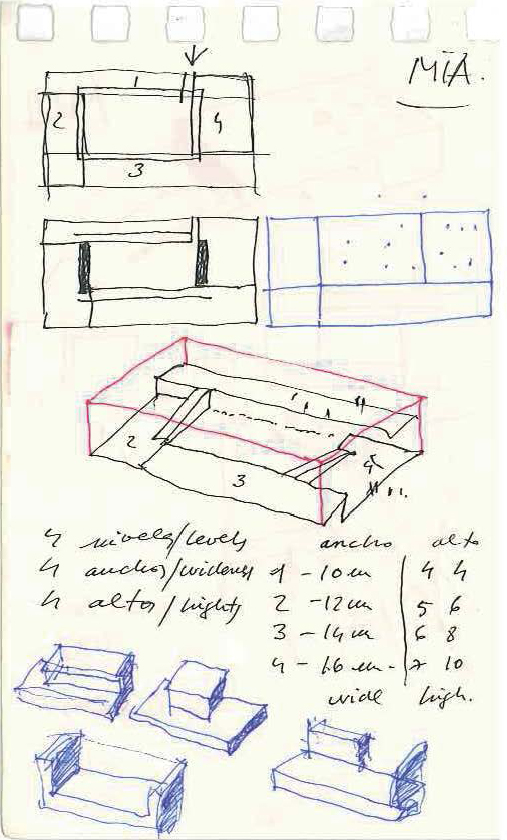 MIA.
1
2 4
3
2 4
3
4 niveles/levels ancho alto
4 anchos/widenes 1 - 10 cm 4 4
4 altos/hights 2 - 12 cm 5 6
3 - 14 cm 6 8
4 - 16 cm - 7 10
wide high.